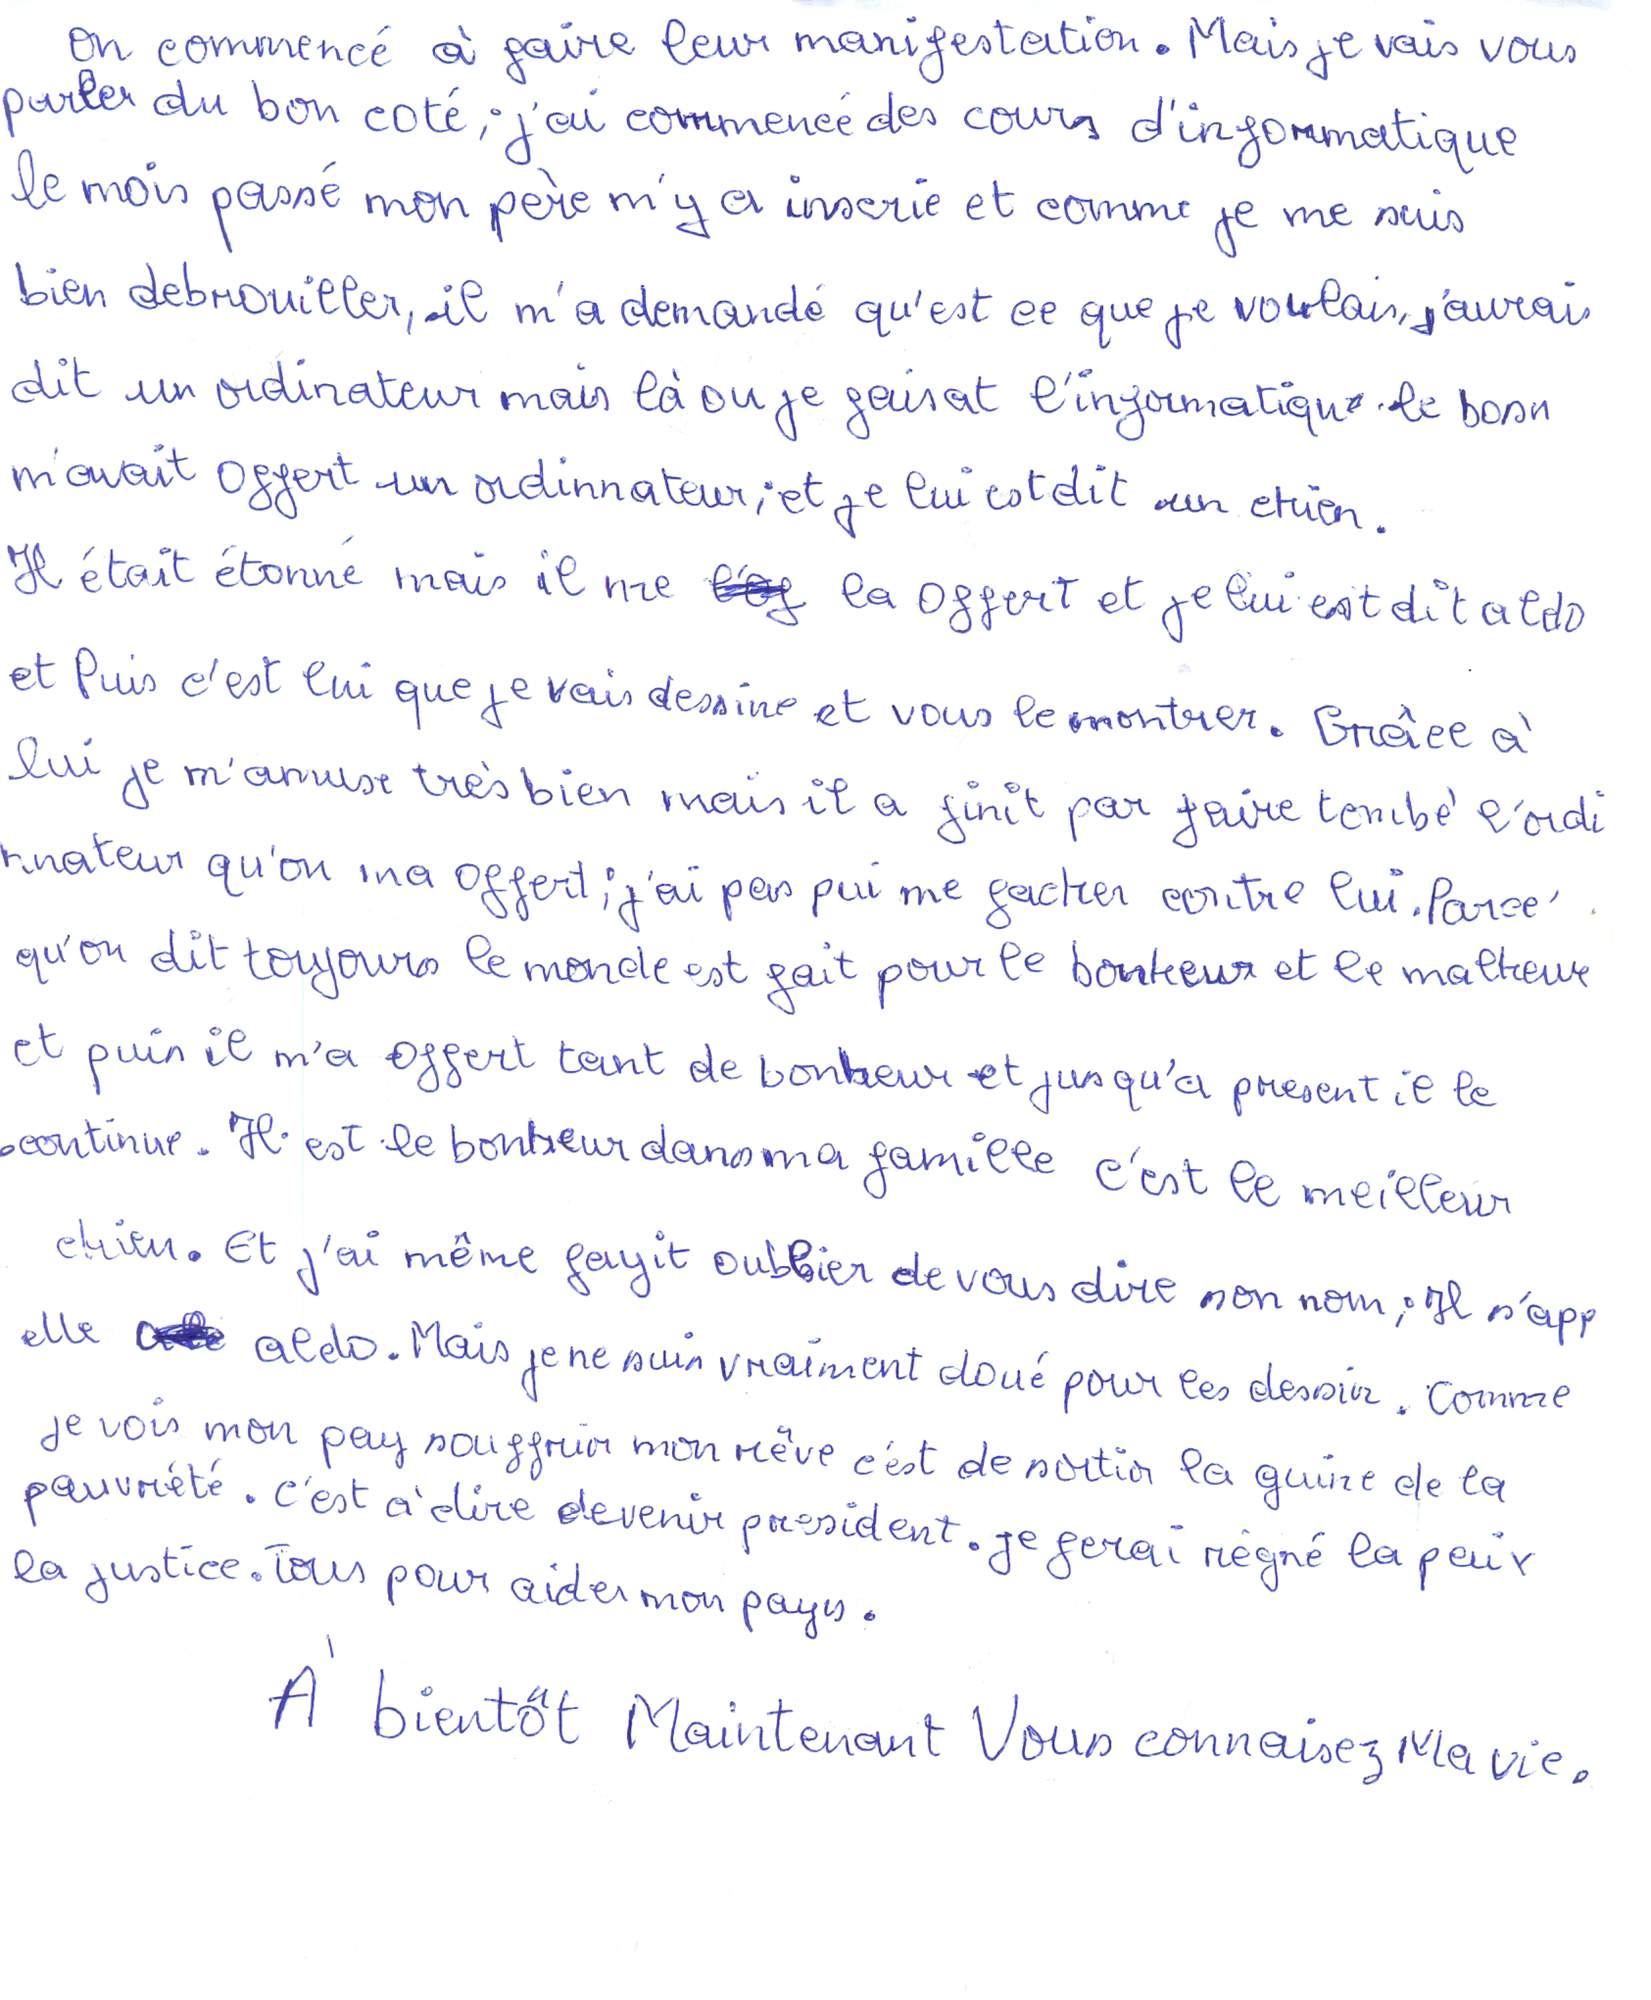 on commencé à faire leur manifestation. Mais je vais vous
parler du bon coté, j'ai commencé des cours d'informatique
le mois passé mon père m'y a inscrie et comme je me suis
bien debrouiller, il m'a demandé qu'est ce que je voulais, j'aurais
dit un ordinateur mais là ou je faisat l'informatique le boss
m'avait offert un ordinnateur, et je lui est dit un chien.
Il était étonné mais il me la offert et je lui est dit aldo
et Puis c'est lui que je vais dessine et vous le montrer. Grâce à
lui je m'amuse très bien mais il a finit par faire tombé l'ordi
nnateur qu'on ma offert; j'ai pas pui me facher contre lui. Parce
qu'on dit toujours le monde est fait pour le bonheur et le malheur
et puis il m'a offert tant de bonheur et jusqu'a present il le
continue. Il est le bonheur dans ma famille c'est le meilleur
chien. Et j'ai même fayit oublier de vous dire son nom, Il s'app
elle aldo. Mais je ne suis vraiment doué pour les dessin. Comme
je vois mon pay souffrir mon rêve c'est de sortir la guine de la
pauvriété. c'est à dire devenir president. je ferai règné la peix
la justice. Tous pour aider mon pays.
A' bientôt Maintenant Vous connaisez Ma vie.